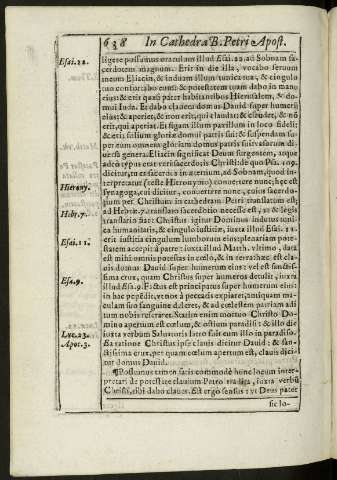 638 In Cathedra B. Petri Apost.
Esai.22.
ligere possumus oraculum illud Esai. 22. ad Sobnam sa-
cerdotem magnum. Erit in die illa, vocabo seruum
meum Eliacin, & induam illum tunica tua, & cingulo
tuo confortabo eum: & potestatem tuam dabo in manu
eius: & erit quasi pater habitantibus Hierusalem, & do-
mui Iuda. Et dabo clauem domus Dauid super humerũ
eius: & aperiet, & non erit, qui claudat; & claudet, & nõ
erit, qui aperiat. Et figam illum paxillum in loco fideli;
& erit solium gloriæ domui patris sui: & suspendam su-
per eum omnem gloriam domus patris sui vasorum di-
uersa genera. Eliacin significat Deum surgentem,
adeo typus erat verè sacerdotis Christi de quo Psa. 109.
dicitur, tu es sacerdos in æternum, ad Sobnam, quod in-
Hierony.
terpretatur (teste Hieronymo) conuertere nunc; hęc est
synagoga, cui dicitur, conuertere nunc, cuius sacerdo-
tium per Christum in cathedram Petri translatum est;
Hebr.7.
ad Hebræ.7. translato sacerdotio necesse est, vt & legis
translatio fiat: Christus igitur Dominus indutus tuni-
ca humanitatis, & cingulo iustitiæ, iuxta illud Esai. 11.
Esai.11.
erit iustitia cingulum lumborum eius plenariam pote-
statem accepit à patre: iuxta illud Matth. vltimo, data
est mihi omnis potestas in cœlo, & in terra: hæc est cla-
uis domus Dauid super humerum eius: vel est sanctis-
sima crux, quam Christus super humeros detulit, iuxta
Esa.9.
illud Esa.9. Factus est principatus super humerum eius
in hac pependit, vt nos à peccatis expiaret, antiquam ma-
culam suo sanguine deleret, & ad cœlestem patriam adi-
tum nobis reseraret. Statim enim mortuo Christo Do
mino apertum est cœlum, & ostium paradisi: & illo die
Luc.23.
iuxta verbum Saluatoris latro fuit cum illo in paradiso.
Apoc.3.
Ea ratione Christus ipse clauis dicitur Dauid: & san-
ctissima crux, per quam cœlum apertum est, clauis dici-
tur domus Dauid.
¶Possumus tamen satis commodè hunc locum inter-
pretari de potestate clauium Petro tradita, iuxta verba
Christi, tibi dabo claues. Est ergo sensus: vt Deus pater
sic lo-